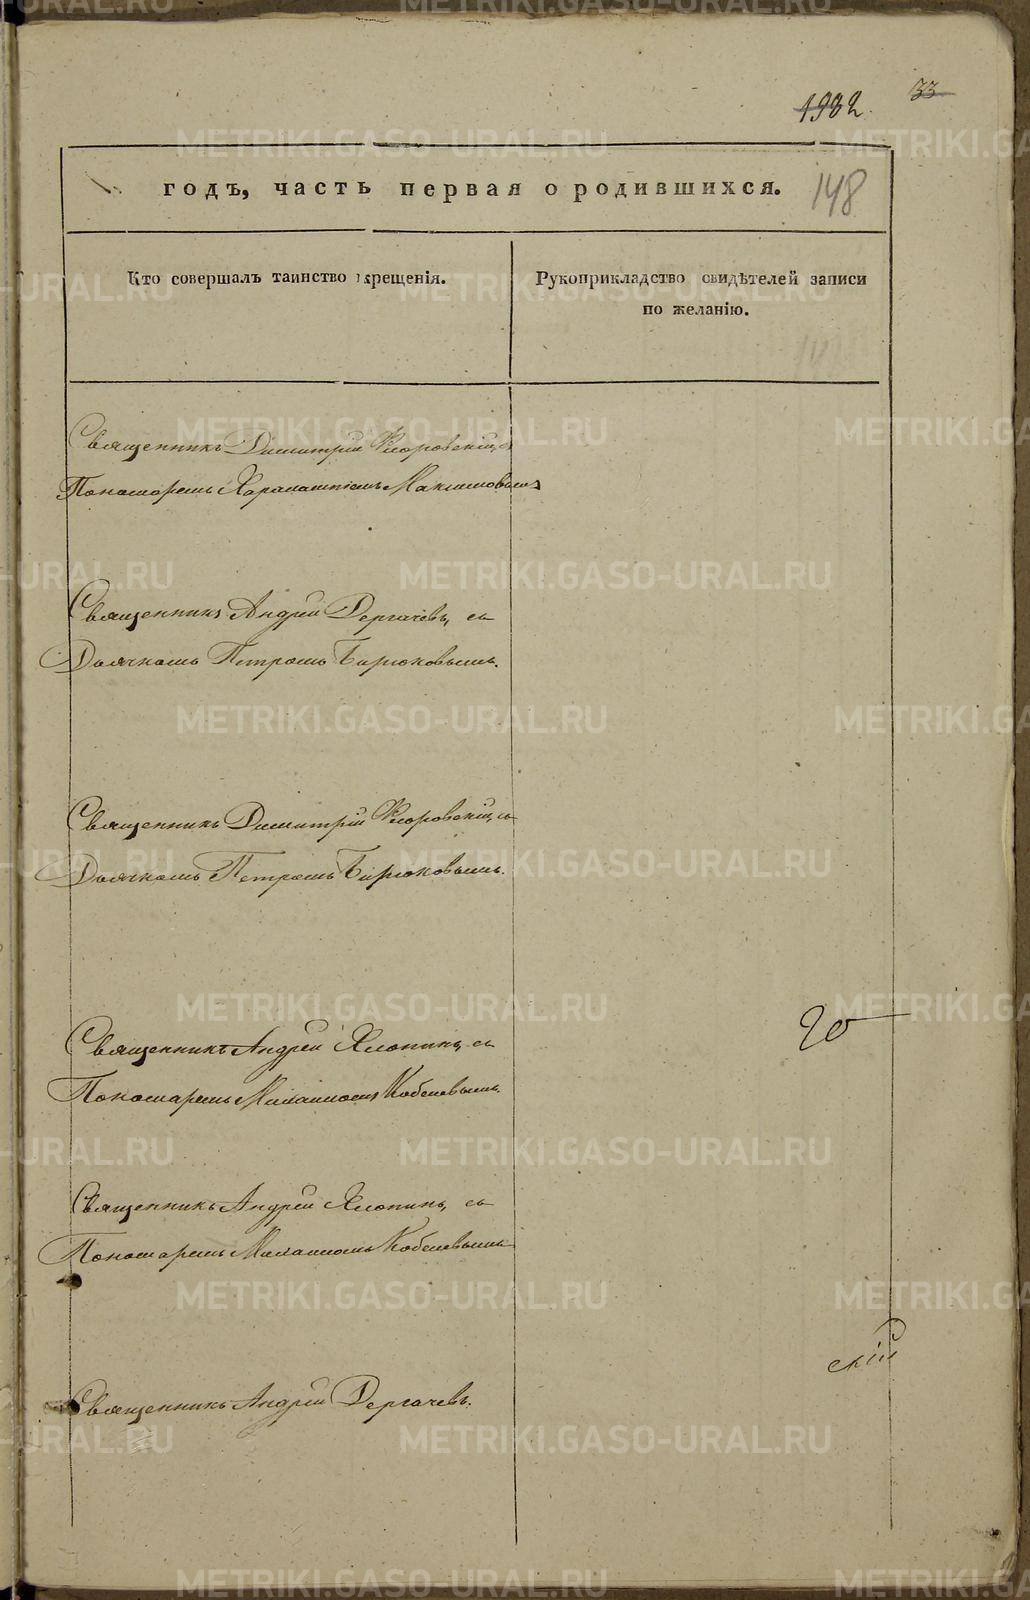 33
1932.
годъ, часть первая о родившихся.
148
Кто совершалъ таинство крещенія.
Рукоприкладство свидѣтелей записи
по желанію.
Священникъ Димитрій Флоровскій, съ
Пономаремъ Харалампіемъ Максимовымъ
Священникъ Андрей Дергачевъ, съ
Дьячкомъ Петромъ Бирюковымъ.
Священникъ Димитрій Флоровскій, съ
Дьячкомъ Петромъ Бирюковымъ.
20
Священникъ Андрей Хлопинъ, съ
Пономаремъ Михаиломъ Кобелевымъ.
Священникъ Андрей Хлопинъ, съ
Пономаремъ Михаиломъ Кобелевымъ
скій
Священникъ Андрей Дергачевъ.
METRIKI.GASO-URAL.RU